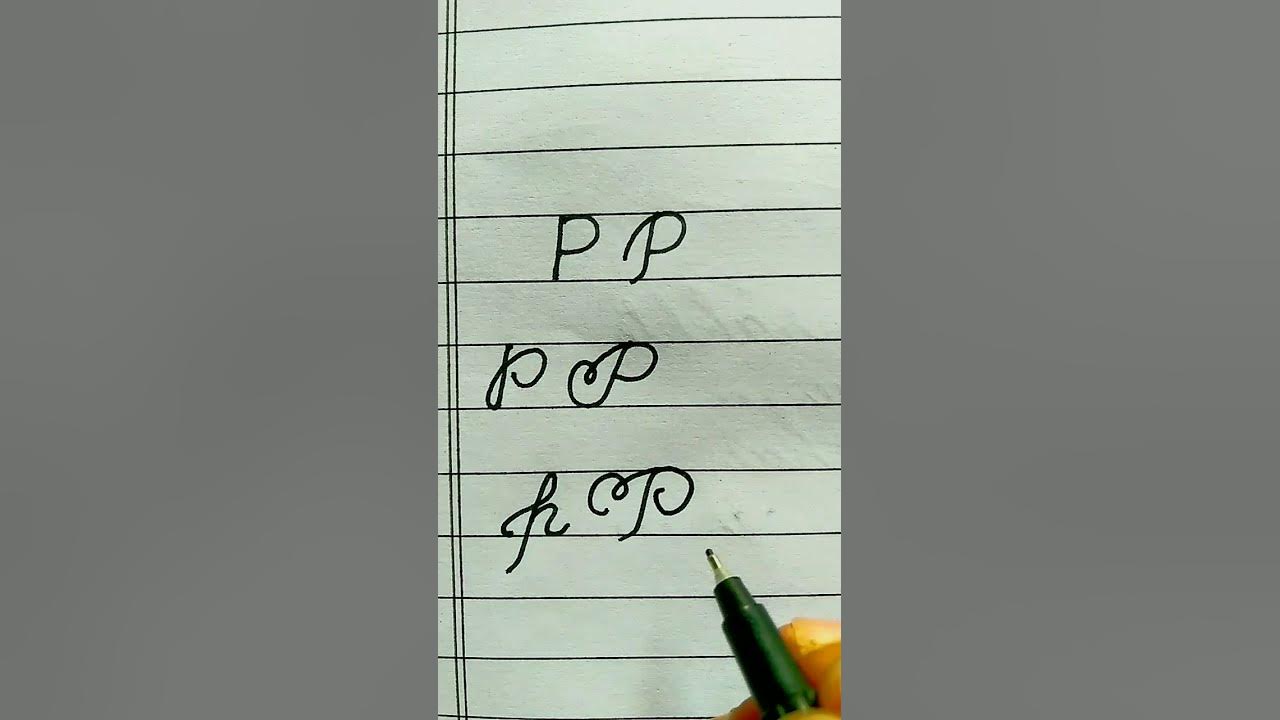 P P
P P
p P